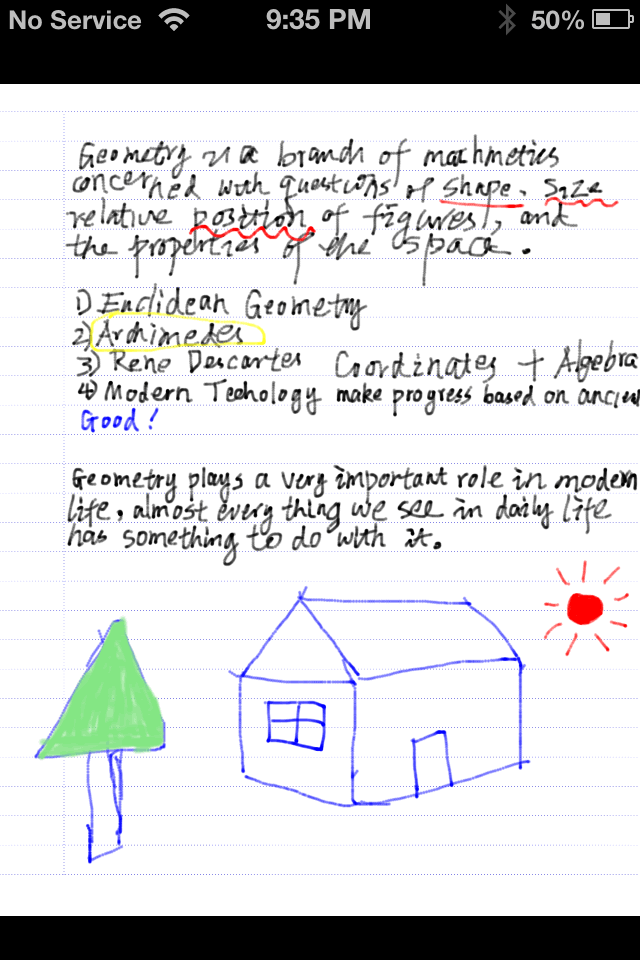 No Service 9:35 PM 50%
Geometry is a branch of machmetics
concerned with questions of shape, size
relative position of figures, and
the properties of the space.
1) Euclidean Geometry
2) Archimedes
3) Rene Descartes Coordinates + Algebra
4) Modern Techology make progress based on ancien
Good!
Geometry plays a very important role in modern
life, almost every thing we see in daily life
has something to do with it.